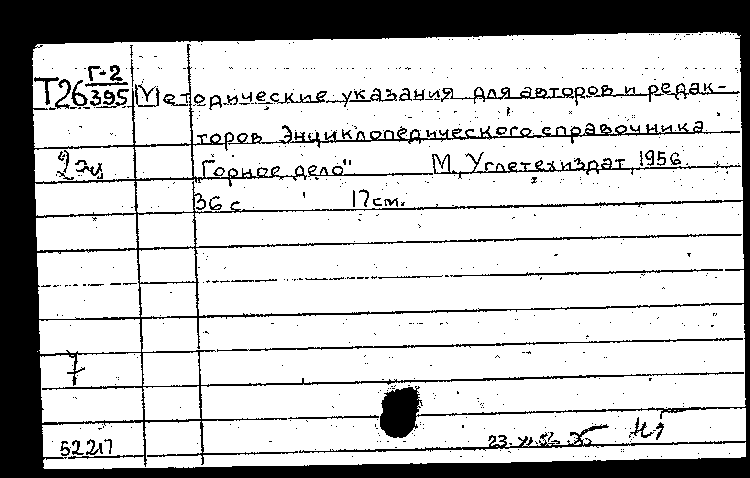 Г-2
Т26 395 Методические указания для авторов и редак-
торов Энциклопедического справочника
2 эк "Горное дело" М., Углетехиздат, 1956
36 с. 17см.
7
52217 23. XI.56